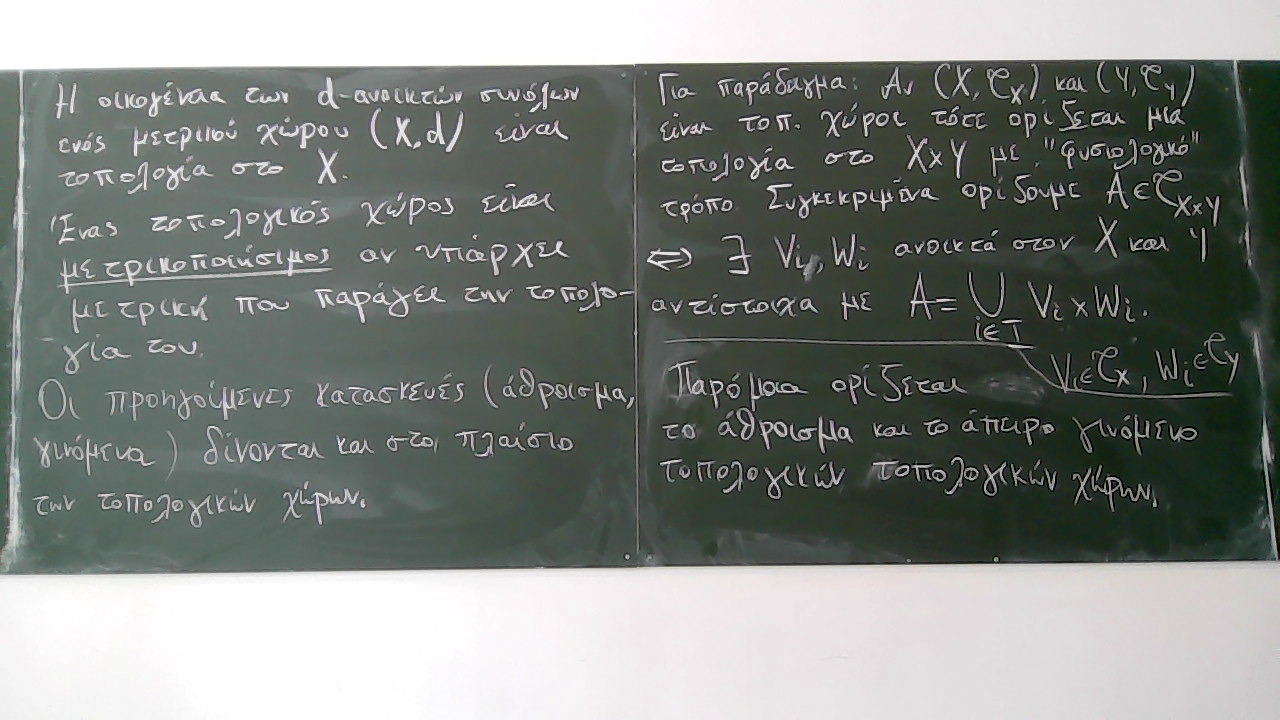 Η οικογένεια των d-ανοικτών συνόλων
ενός μετρικού χώρου (X,d) είναι
τοπολογία στο X.
Ένας τοπολογικός χώρος είναι
μετρικοποιήσιμος αν υπάρχει
μετρική που παράγει την τοπολο-
γία του.
Οι προηγούμενες κατασκευές (άθροισμα,
γινόμενα) δίνονται και στο πλαίσιο
των τοπολογικών χώρων.
Για παράδειγμα: Αν (X, 𝒯_X) και (Y, 𝒯_Y)
είναι τοπ. χώροι τότε ορίζεται μια
τοπολογία στο X×Y με "φυσιολογικό"
τρόπο. Συγκεκριμένα ορίζουμε A∈𝒯_{X×Y}
⇔ ∃ V_i, W_i ανοικτά στον X και Y
αντίστοιχα με A = ⋃_{i∈I} V_i × W_i.
V_i∈𝒯_X, W_i∈𝒯_Y
Παρόμοια ορίζεται
το άθροισμα και το άπειρο γινόμενο
τοπολογικών τοπολογικών χώρων.